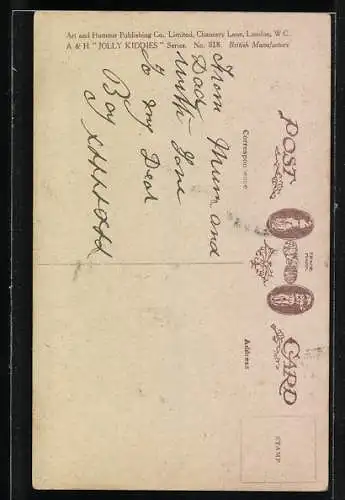 Art and Humour Publishing Co., Limited, Chancery Lane, London, W.C.
A & H "JOLLY KIDDIES" Series. No. 818. British Manufacture
POST CARD
TRADE MARK
Correspondence
Address
STAMP
From Mum and
Dad
with love
to my Dear
Boy